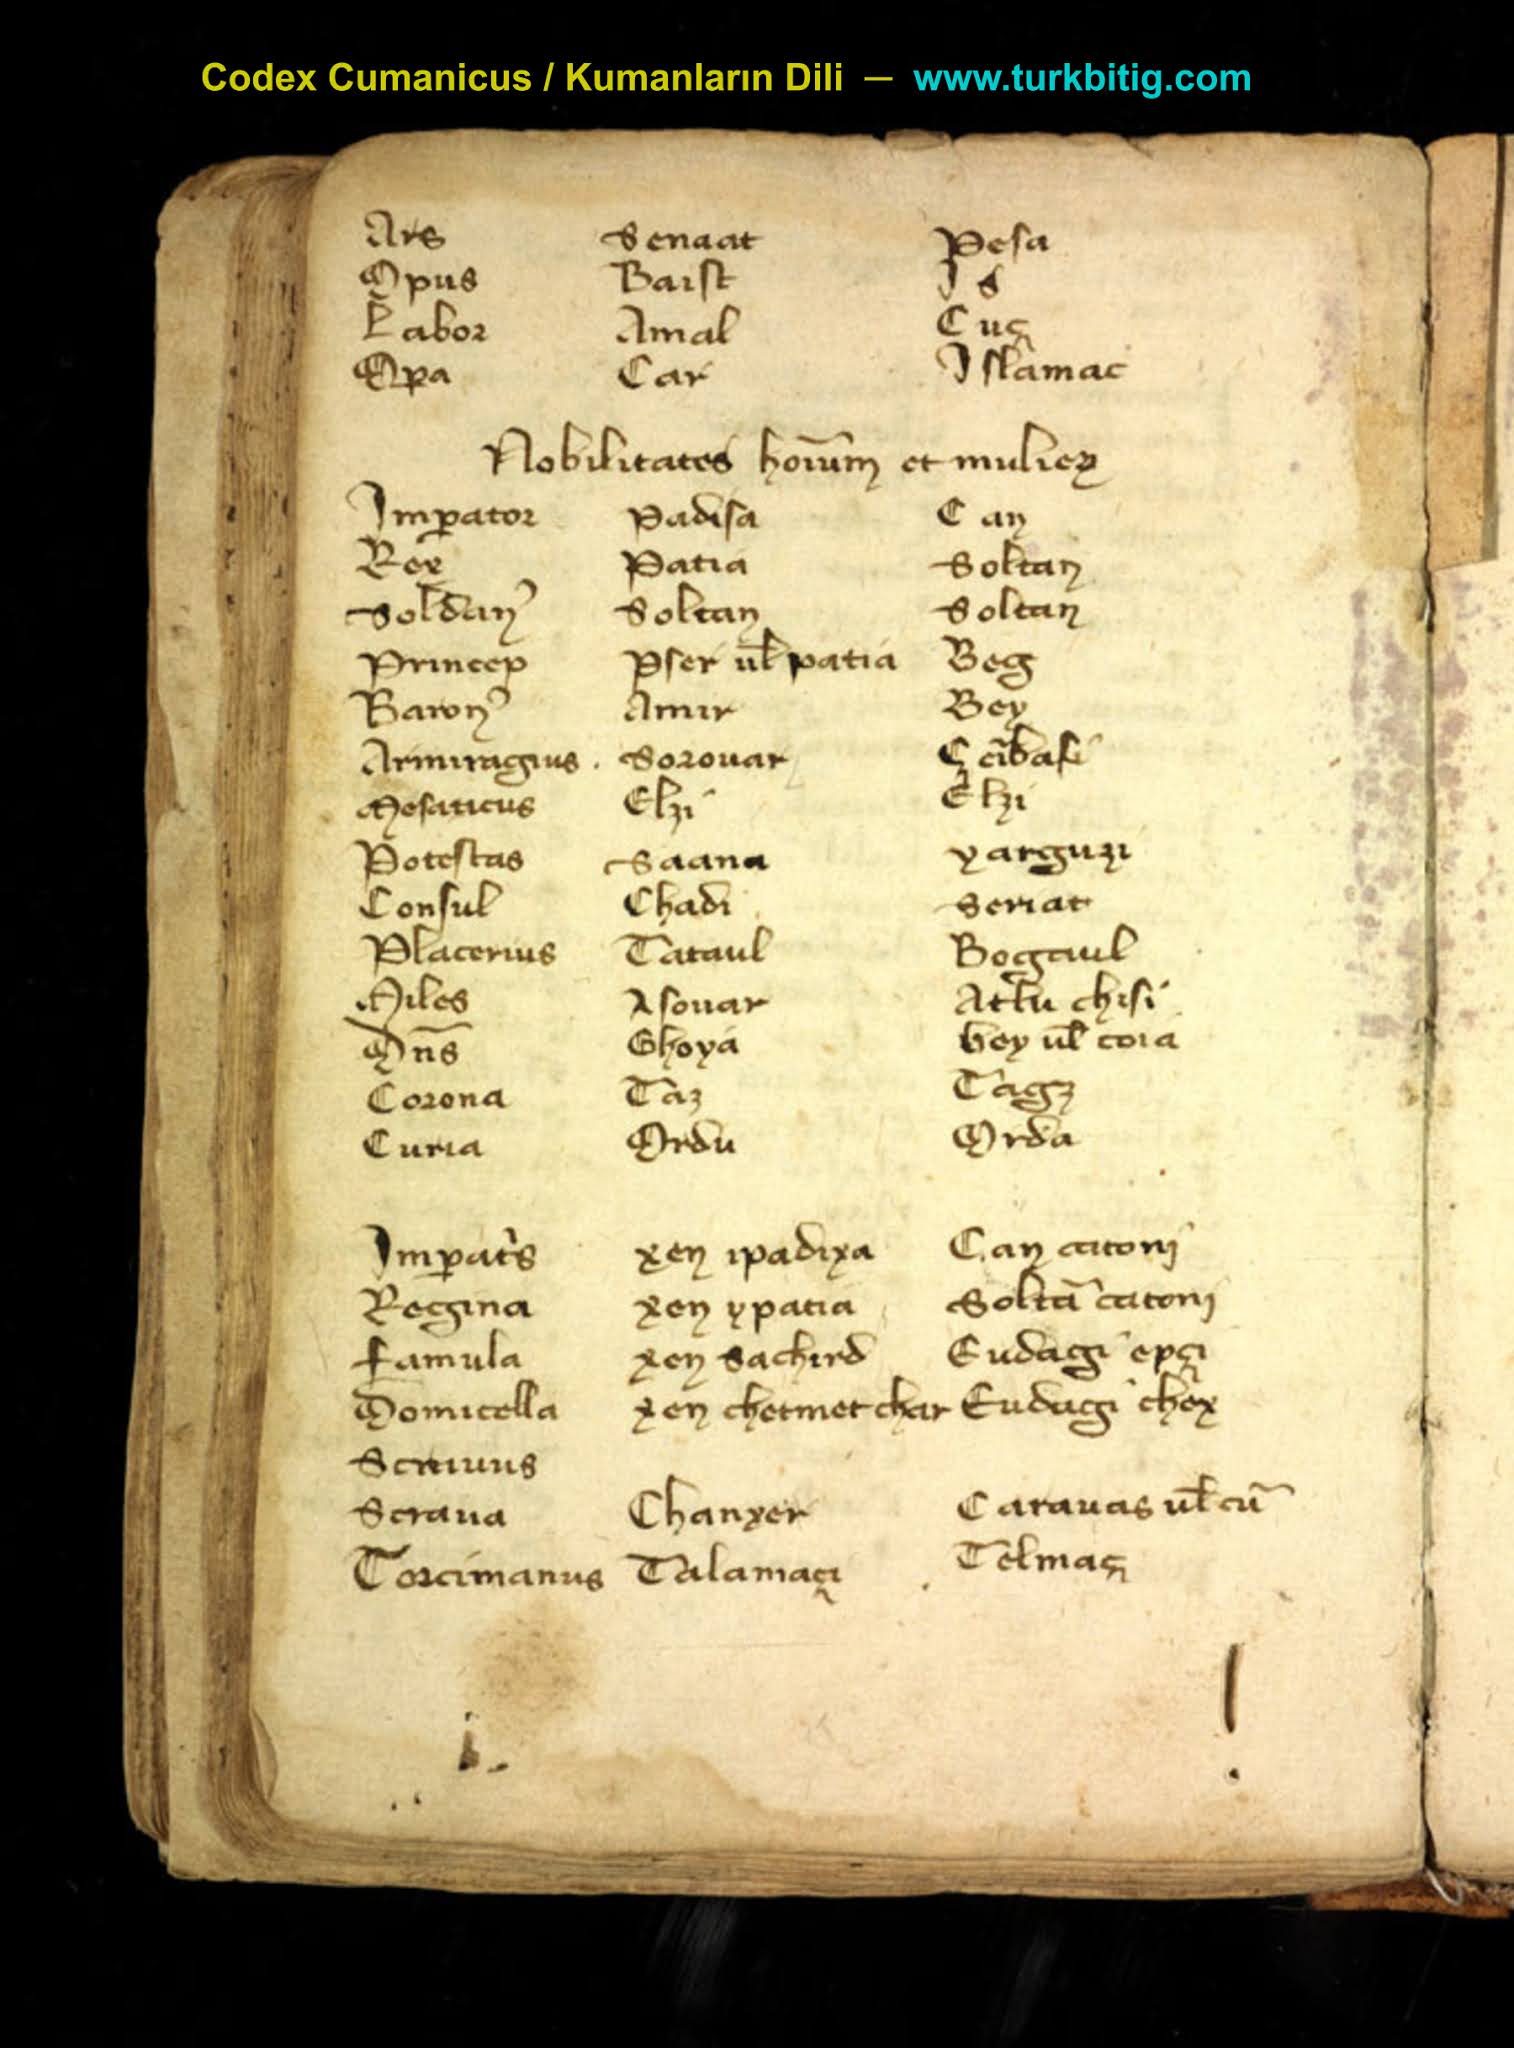 Codex Cumanicus / Kumanların Dili — www.turkbitig.com
Ars Senaat Pesa
Opus Baist Is
Labor Amal Cuç
Opa Car Islamac
Nobilitates hoiūm et mulieꝝ
Imꝑator Padisa Can
Rex Patia Soltan
Soldanꝰ Soltan Soltan
Princep Pser ul̄ patia Beg
Baronꝰ Amir Bey
Armiragius . Sorouar Çcībasi
Mesaticus Elzi Elzi
Potestas Saana yarguzi
Consul Chadi Seriat
Placerius Tataul Bogaul
Miles Asouar Atlu chisi
Dn̄s Ghoya bey ul̄ coia
Corona Taz Tagz
Curia Ordu Orda
Imꝑat's xen ipadixa Can catoni
Regina xen ypatia Soltā catoni
Famula xen Sachird Eudagi epçi
Domicella xen chetmet char Eudagi chex
Scrauus
Scraua Chanxer Carauas ul̄ cū
Torcimanus Talamaçi Telmaç